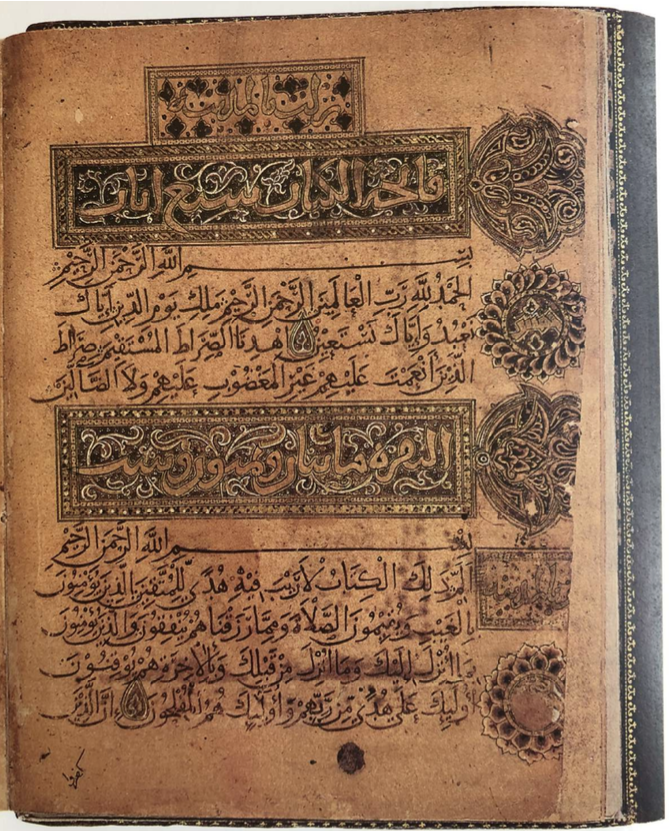 نزلت بالمدينة
فاتحة الكتاب سبع ايات
بِسْمِ اللَّهِ الرَّحْمَنِ الرَّحِيمِ
الحَمْدُ لِلَّهِ رَبِّ الْعَالَمِينَ الرَّحْمَنِ الرَّحِيمِ مَلِكِ يَوْمِ الدِّينِ إِيَّاكَ
نَعْبُدُ وَإِيَّاكَ نَسْتَعِينُ اهْدِنَا الصِّرَاطَ الْمُسْتَقِيمَ صِرَاطَ
الَّذِينَ أَنْعَمْتَ عَلَيْهِمْ غَيْرِ الْمَغْضُوبِ عَلَيْهِمْ وَلَا الضَّالِّينَ
البقرة مايتان وثمانون وست
بِسْمِ اللَّهِ الرَّحْمَنِ الرَّحِيمِ
الم ذَلِكَ الْكِتَابُ لَا رَيْبَ فِيهِ هُدًى لِلْمُتَّقِينَ الَّذِينَ يُؤْمِنُونَ
بِالْغَيْبِ وَيُقِيمُونَ الصَّلَاةَ وَمِمَّا رَزَقْنَاهُمْ يُنْفِقُونَ وَالَّذِينَ يُؤْمِنُونَ
بِمَا أُنْزِلَ إِلَيْكَ وَمَا أُنْزِلَ مِنْ قَبْلِكَ وَبِالْآخِرَةِ هُمْ يُوقِنُونَ
أُولَيِكَ عَلَى هُدًى مِنْ رَبِّهِمْ وَأُولَيِكَ هُمُ الْمُفْلِحُونَ إِنَّ الَّذِينَ
كفروا